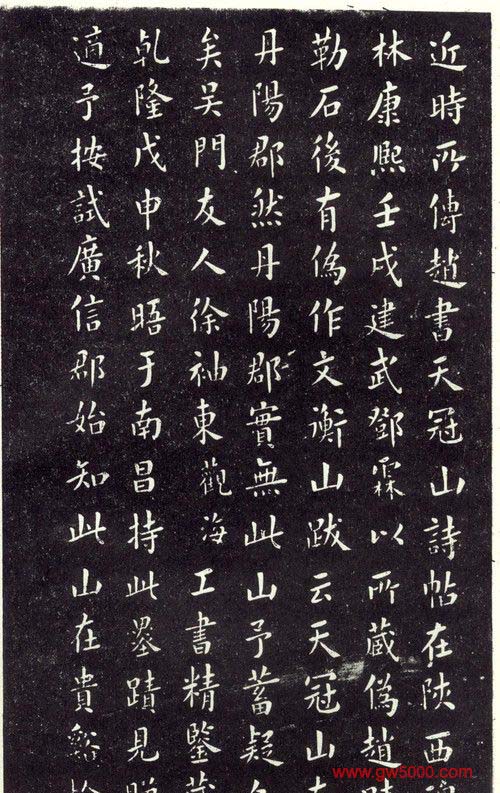 近時所傳趙書天冠山詩帖在陝西
林康熙壬戌建武鄧霖以所藏偽趙
勒石後有偽作文衡山跋云天冠山
丹陽郡然丹陽郡實無此山予蓄疑
矣吴門友人徐袖東觀海工書精鑒
乾隆戊申秋晤于南昌持此墨蹟見
適予按試廣信郡始知此山在貴谿
www.gw5000.com